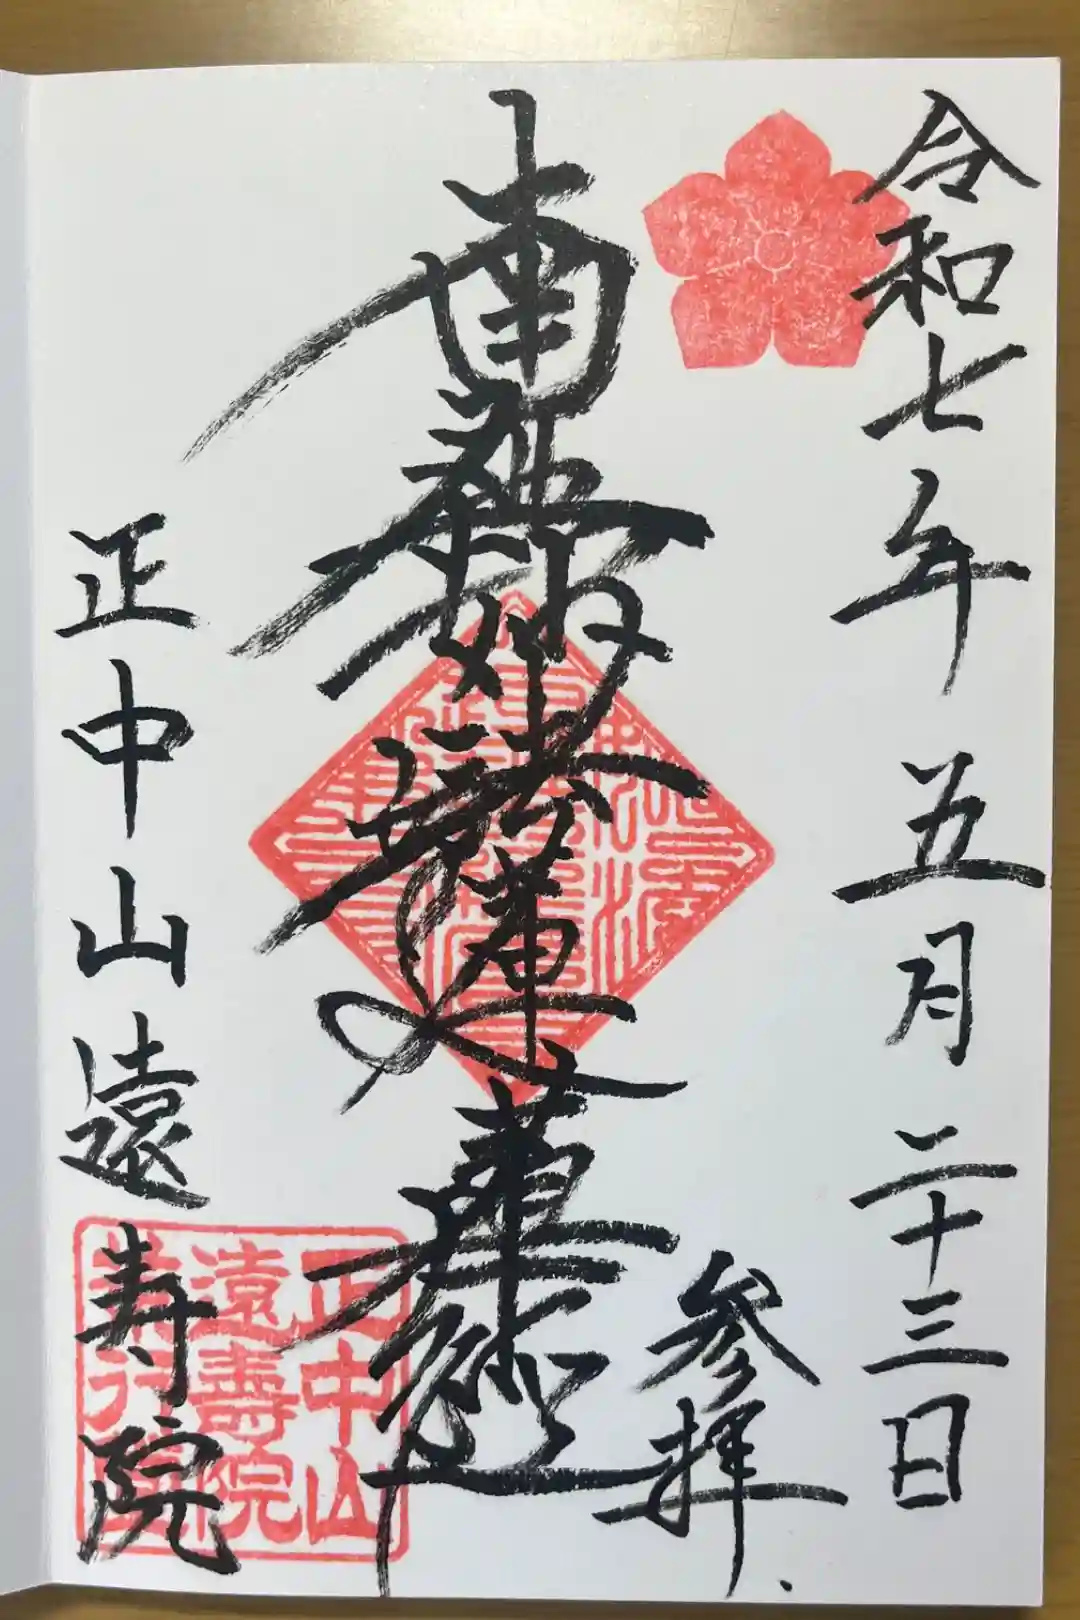 令和七年 五月 二十三日
参拝
南無妙法蓮華経
正中山遠寿院
正中山
遠壽院